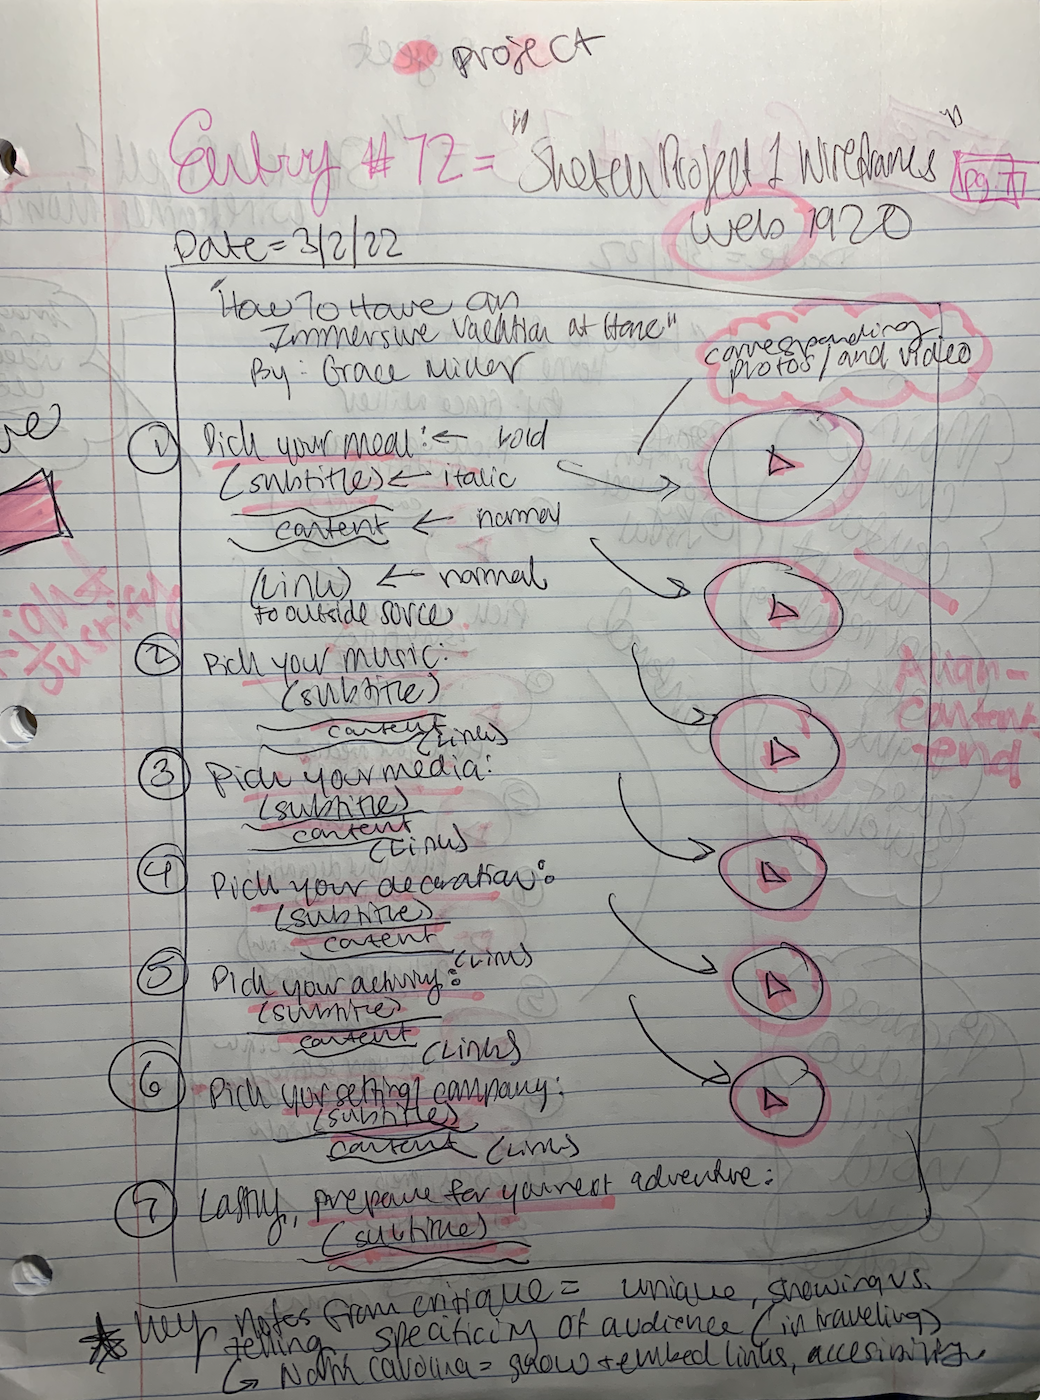 project
Entry #72 = "Sketch Project 1 Wireframes" pg. 1
Web 1920
Date = 3/2/22
"How To Have an
Immersive Vacation at Home"
By: Grace Miller
corresponding
photos/and video
① Pick your meal: ← bold
(subtitle) ← italic
content ← normal
(Link) ← normal
to outside source
② Pick your music:
(subtitle)
content
(Links)
③ Pick your media:
(subtitle)
content
(Links)
④ Pick your decoration:
(subtitle)
content
(Links)
⑤ Pick your activity:
(subtitle)
content
(Links)
⑥ Pick your setting/company:
(subtitle)
content (Links)
⑦ Lastly, prepare for your next adventure:
(subtitle)
Key Notes from critique = unique, showing vs.
telling specificity of audience (in traveling)
↳ North Carolina = show + embed links, accesibility